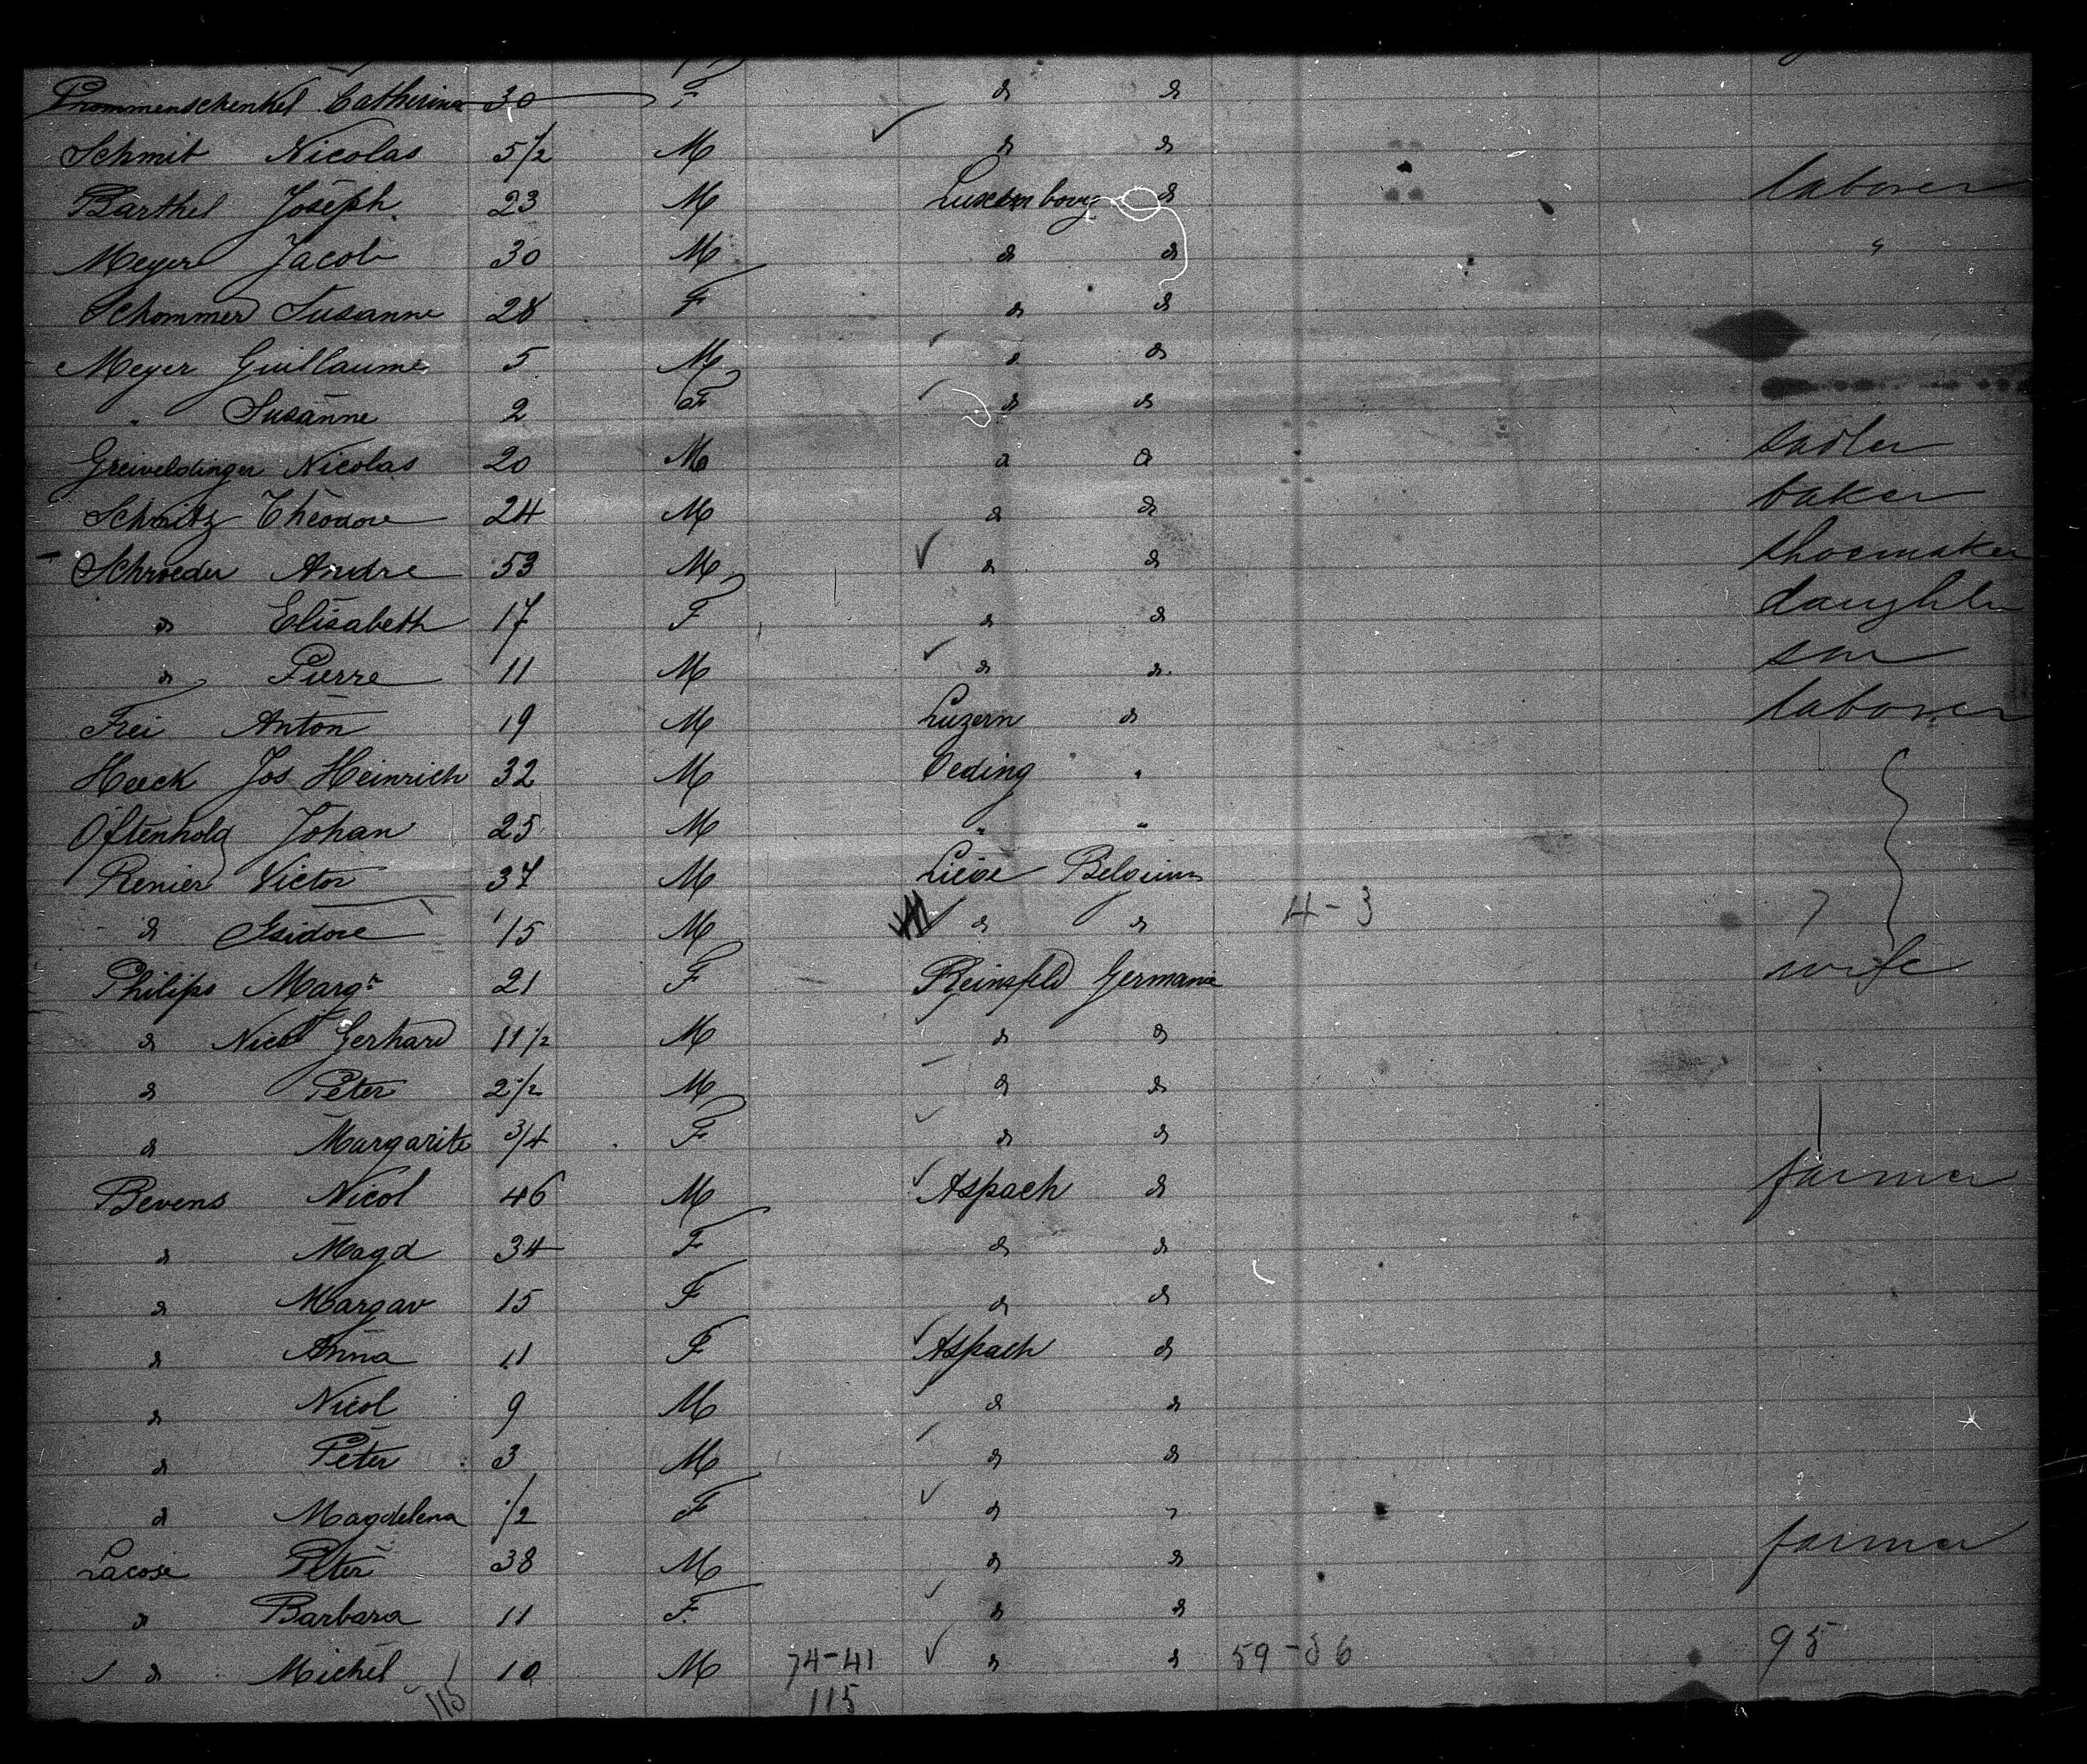 Prommenschenkel Catherina 30 F do do
Schmit Nicolas 5 1/2 M do do
Barthel Joseph 23 M Luxembourg do laborer
Meyer Jacob 30 M do do "
Schommer Susanne 28 F do do
Meyer Guillaume 5 M do do
" Susanne 2 F do do
Greiveldinger Nicolas 20 M do do sadler
Schmitz Théodore 24 M do do baker
Schroeder Andre 53 M do do shoemaker
do Elisabeth 17 F do do daughter
do Pierre 11 M do do son
Frei Anton 19 M Luzern do laborer
Heeck Jos Heinrich 32 M Oeding "
Oftenhold Johan 25 M " "
Renier Victor 37 M Liége Belgium
do Isidore 15 M do do 4-3
Philips Margr 21 F Reinsfeld Germanie wife
do Nicol Gerhard 11 1/2 M do do
do Peter 2 1/2 M do do
do Margarite 3/4 F do do
Bevens Nicol 46 M Aspach do farmer
do Magd 34 F do do
do Margar 15 F do do
do Anna 11 F Aspach do
do Nicol 9 M do do
do Peter 3 M do do
do Magdelena 1/2 F do "
Lacose Peter 38 M do do farmer
do Barbara 11 F do do
do Michel 10 M 74-41 do do 59-36 95
115 115